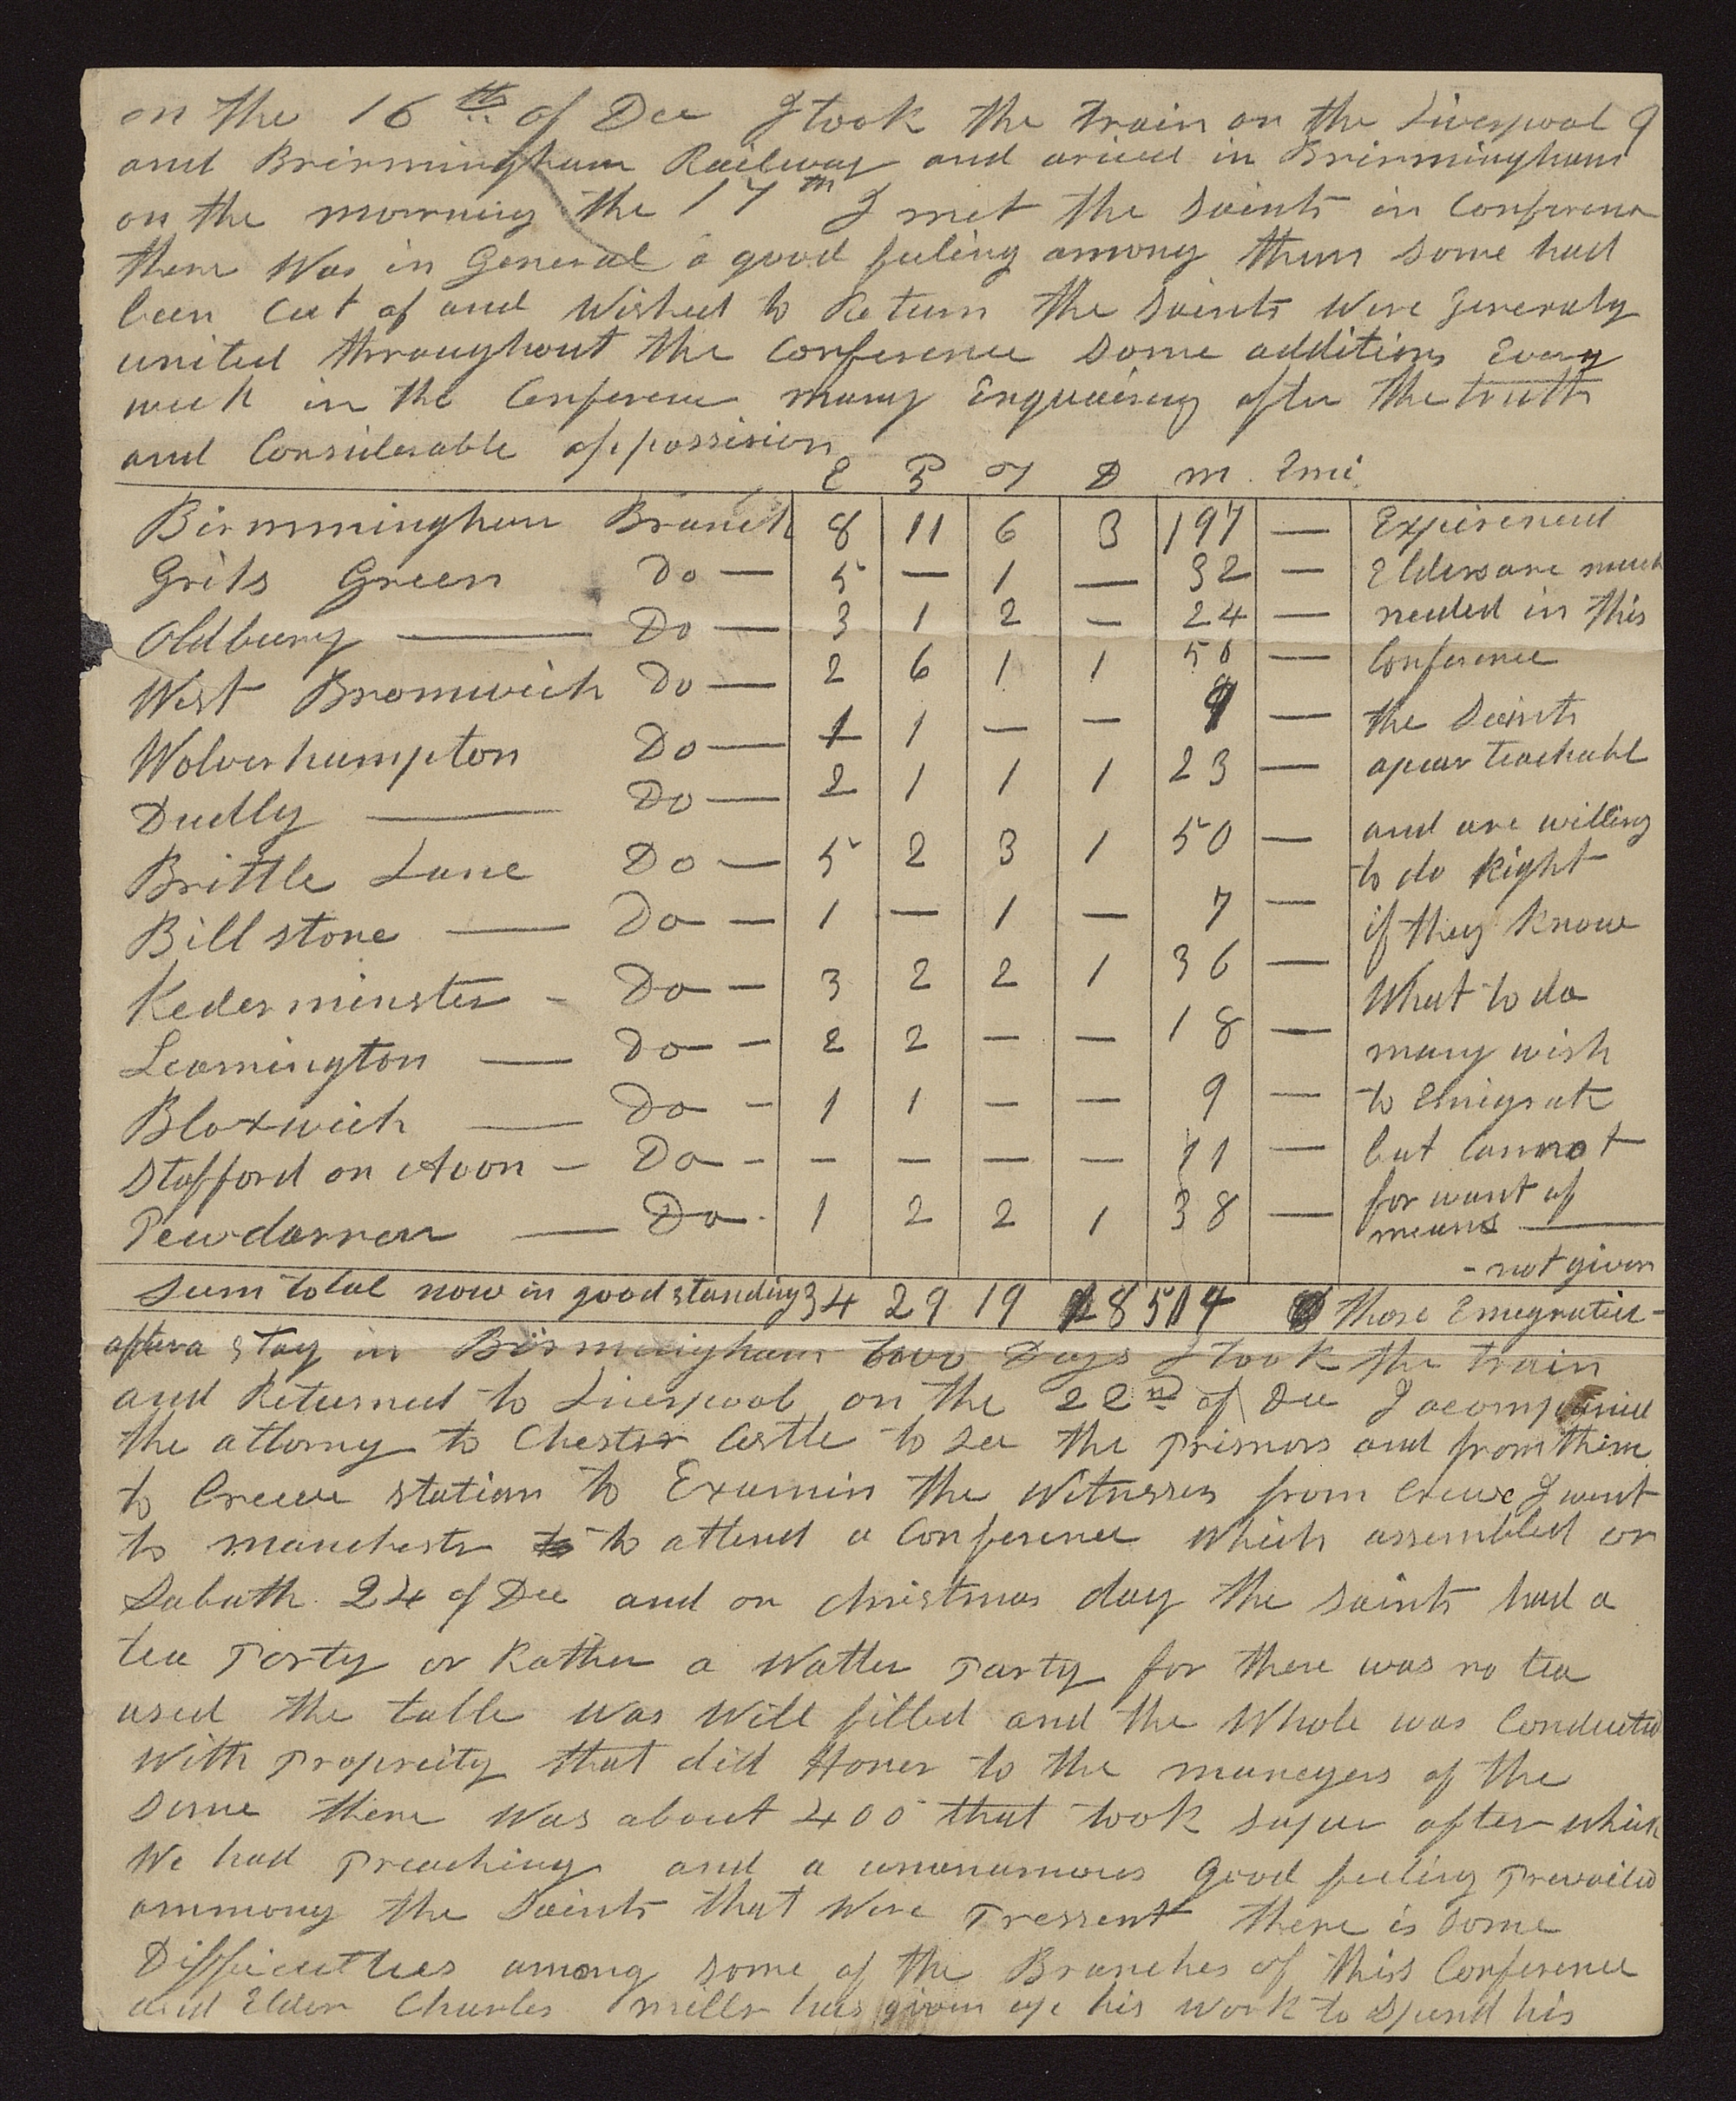 on the 16th of Dec I took the train on the Liverpool 9
and Brirmingham Railway and arived in Brirmingham
on the mourning the 17th I met the Saints in Conferenc
there Was in General a good feeling among them some had
been Cut of and Wished to Return the Saints Were generaly
united throughout the Conference Some additions Every
week in the Conference many Enquairing after the truth
and Considerable oppossision
E P T D m Emi
Birmmingham Branch 8 11 6 3 197 — Expirienced
Grits Green Do — 5 — 1 — 32 — Elders are much
Oldbury — Do — 3 1 2 — 24 — needed in this
West Bromwich Do — 2 6 1 1 50 — Conference
Wolverhampton Do — 1 1 — — 9 — the Saints
Dudly — Do — 2 1 1 1 23 — apear teachable
Brittle Lane Do — 5 2 3 1 50 — and are willing
to do Right
Billstone — Do — 1 — 1 — 7 — if they Know
Kederminster - Do — 3 2 2 1 36 — What to do
Leamington — Do — 2 2 — — 18 — many wish
Bloxwich — Do — 1 1 — — 9 — to Emigrate
Stafford on Avon — Do - — — — — 11 — but Cannot
Pewdarren — Do - 1 2 2 1 38 — for want of
means —
- not given
Sum total now in good standing 34 29 19 8 514 those Emegratid -
after a stay in Birmmingham two Days I took the train
and Returned to Liverpool on the 22nd of Dec I acompanied
the attorny to Chester Castle to see the Prisnors and from thence
to Crewe station to Examin the Witnesses from Crewe I went
to manchestr to to attend a Conference Which assembled on
Sabath 24 of Dec and on christmas day the saints had a
tea Party or Rather a Watter Party for there was no tea
used the table Was Well filled and the Whole was Conducted
With Propreity that did Honer to the manegers of the
Same there Was about 400 that took super after which
We had Preaching and a unanamous good feeling Prevailed
ammong the Saints that Were Pressent there is some
Difficulties among some of the Branches of this Conference
and Elder Charles Miller has given up his work to spend his